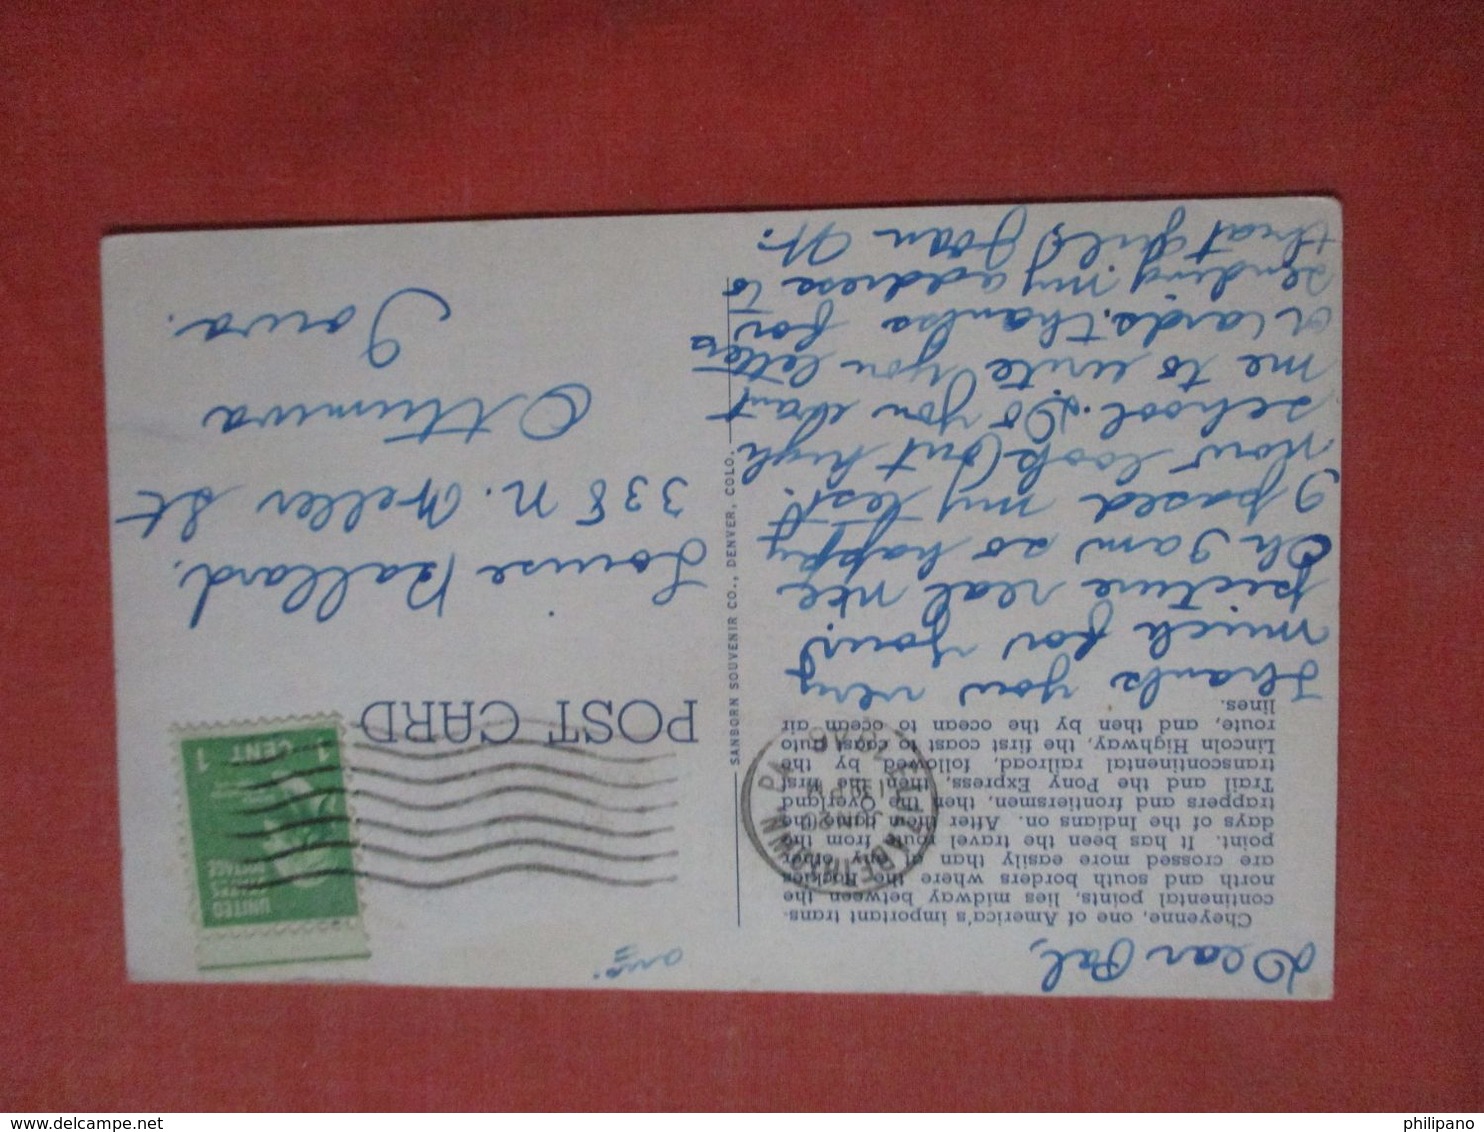 Dear Pal,
Cheyenne, one of America's important trans-
continental points, lies midway between the
north and south borders where the Rockies
are crossed more easily than at any other
point. It has been the travel route from the
days of the Indians on. After them came the
trappers and frontiersmen, then the Overland
Trail and the Pony Express, then the first
transcontinental railroad, followed by the
Lincoln Highway, the first coast to coast auto
route, and then by the ocean to ocean air
lines.
Thanks you very
much for your
picture real nice
Oh I am so happy
I pased my test.
now look out high
school. Do you want
me to write you letters
or cards. thanks for
sending my address to
that girls Joan H.
SANBORN SOUVENIR CO., DENVER, COLO.
PA
1 30 PM
JUN
POST CARD
UNITED
STATES
POSTAGE
1 CENT 1
Louise Ballard.
338 N. Weller St
Ottumwa
Iowa.
philipano
delcampe.net